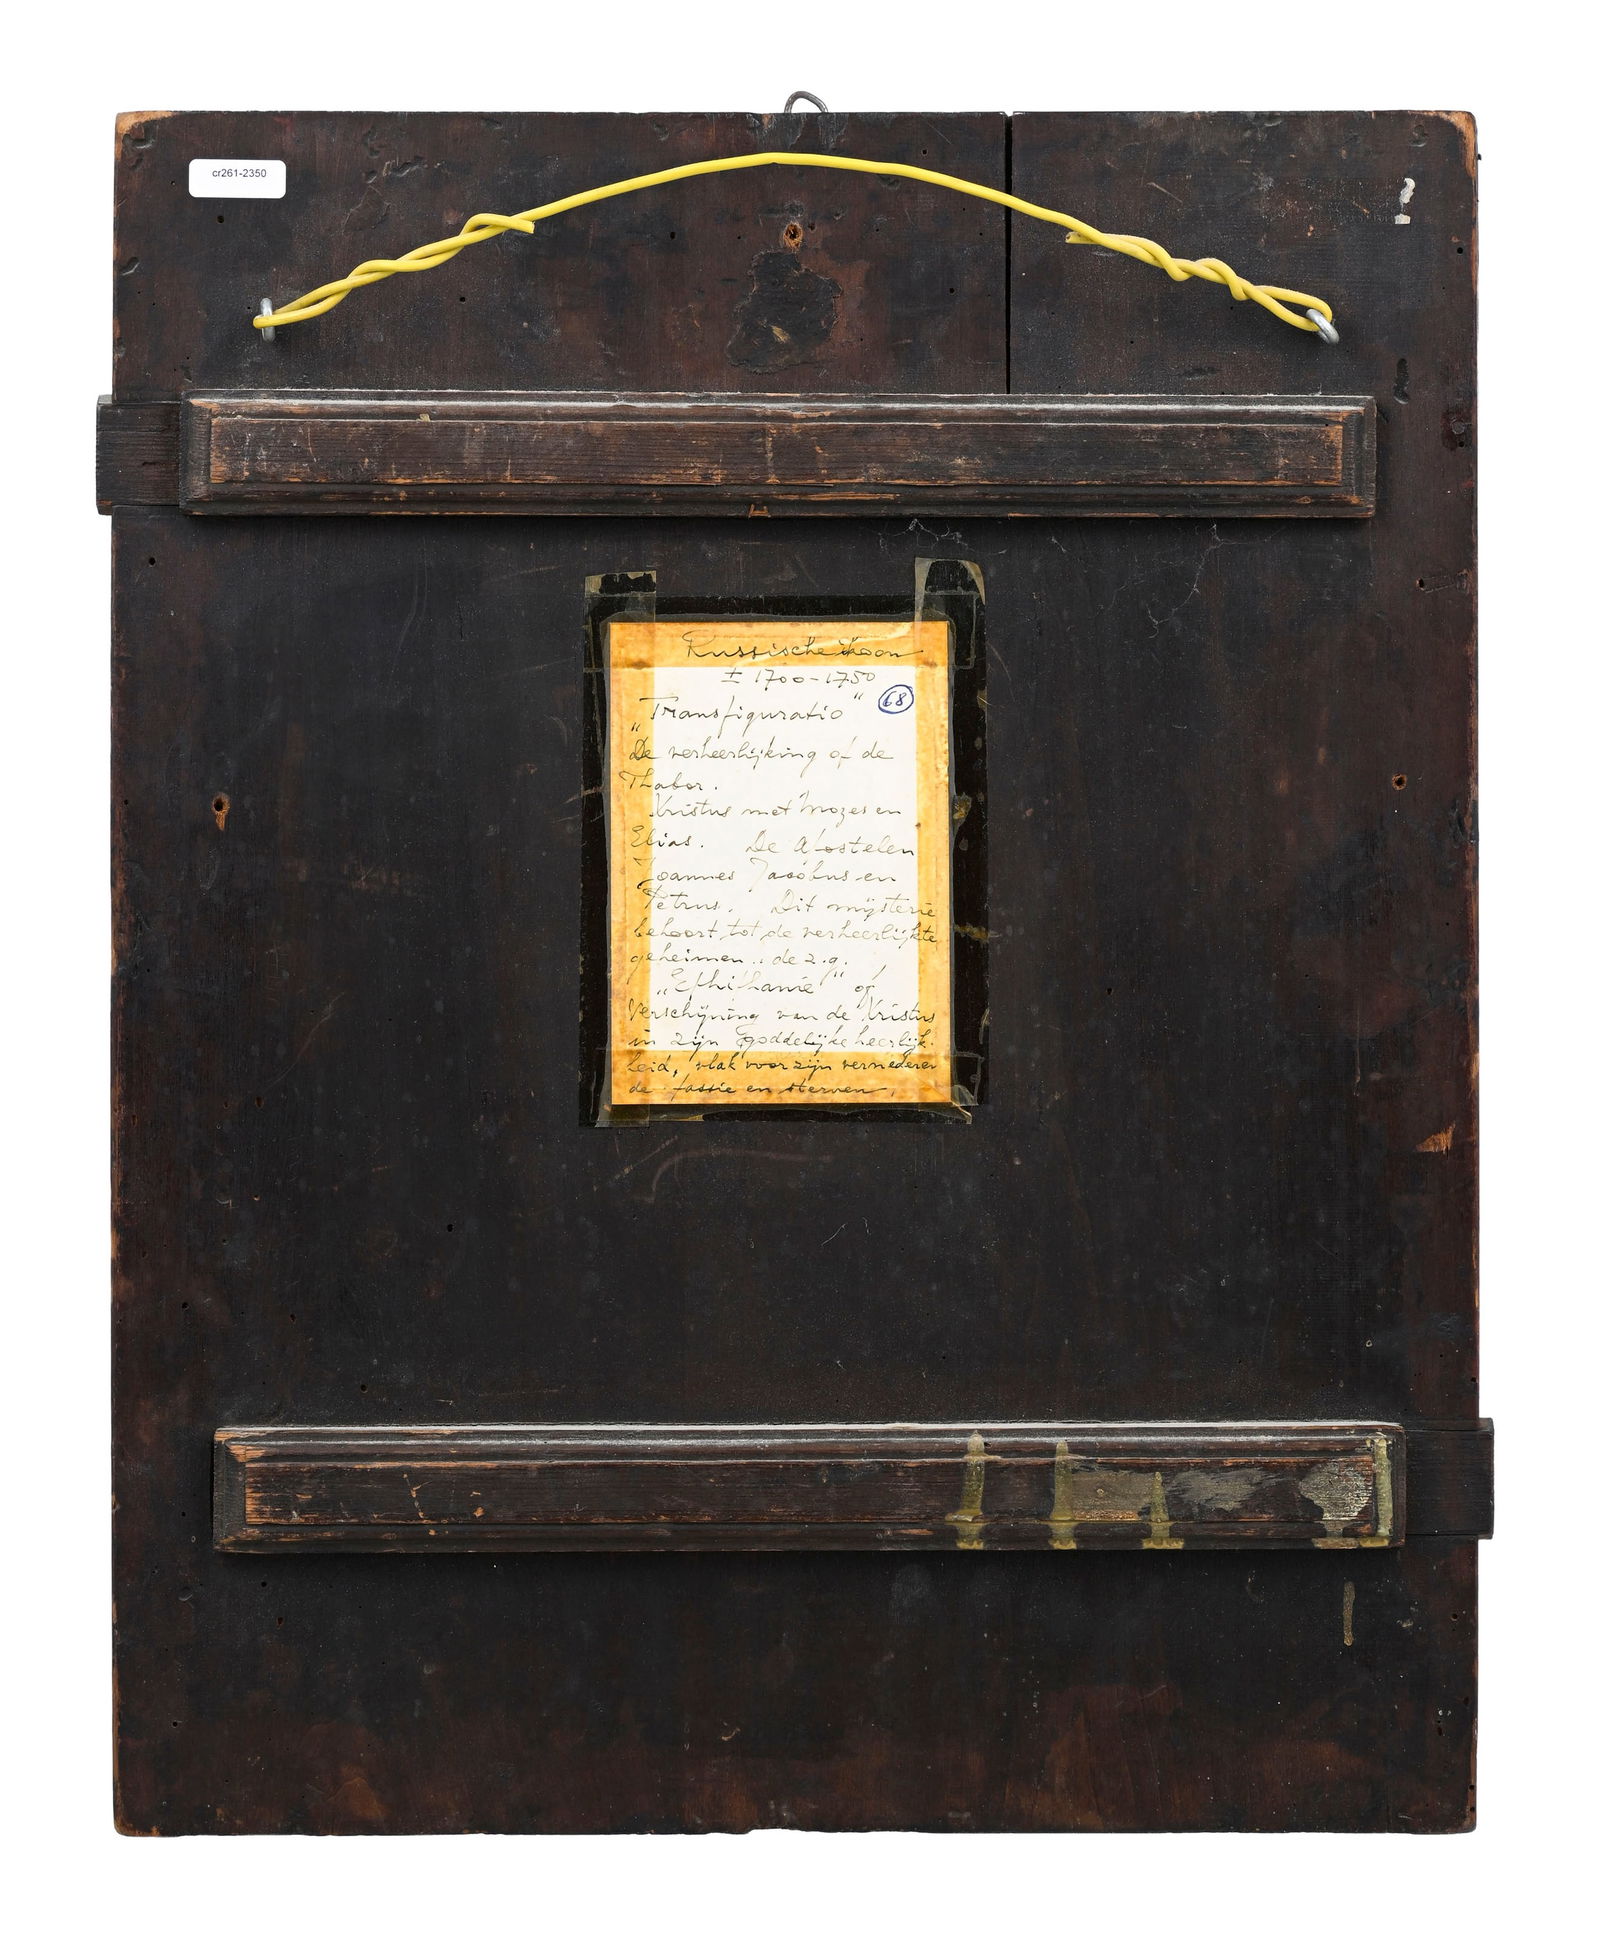 cr261-2350
Russische ikoon
± 1700-1750
68
„Transfiguratio"
De verheerlijking of de
Thabor.
Kristus met Mozes en
Elias. De Apostelen
Joannes Jacobus en
Petrus. Dit mysterie
behoort tot de verheerlijkte
geheimen .. de z.g.
„Ephithanie" of
Verschijning van de Kristus
in zijn goddelijke heerlijk-
heid, vlak voor zijn vernederen
de passie en sterven.